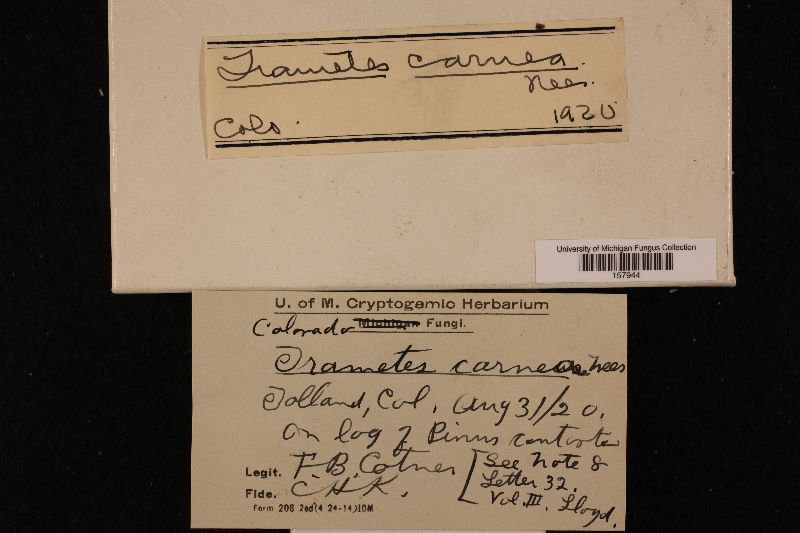 Trametes carnea.
Nees.
Colo. 1920
University of Michigan Fungus Collection
157944
U. of M. Cryptogamic Herbarium
Colorado Michigan Fungi.
Trametes carnea Nees
Tolland, Col. Aug 31/20.
On log of Pinus contorta
Legit. F.B. Cotner [See Note 8
Fide. C.H.K. Letter 32.
Vol. III. Lloyd.
Form 208 2ed(4 24-14)10M